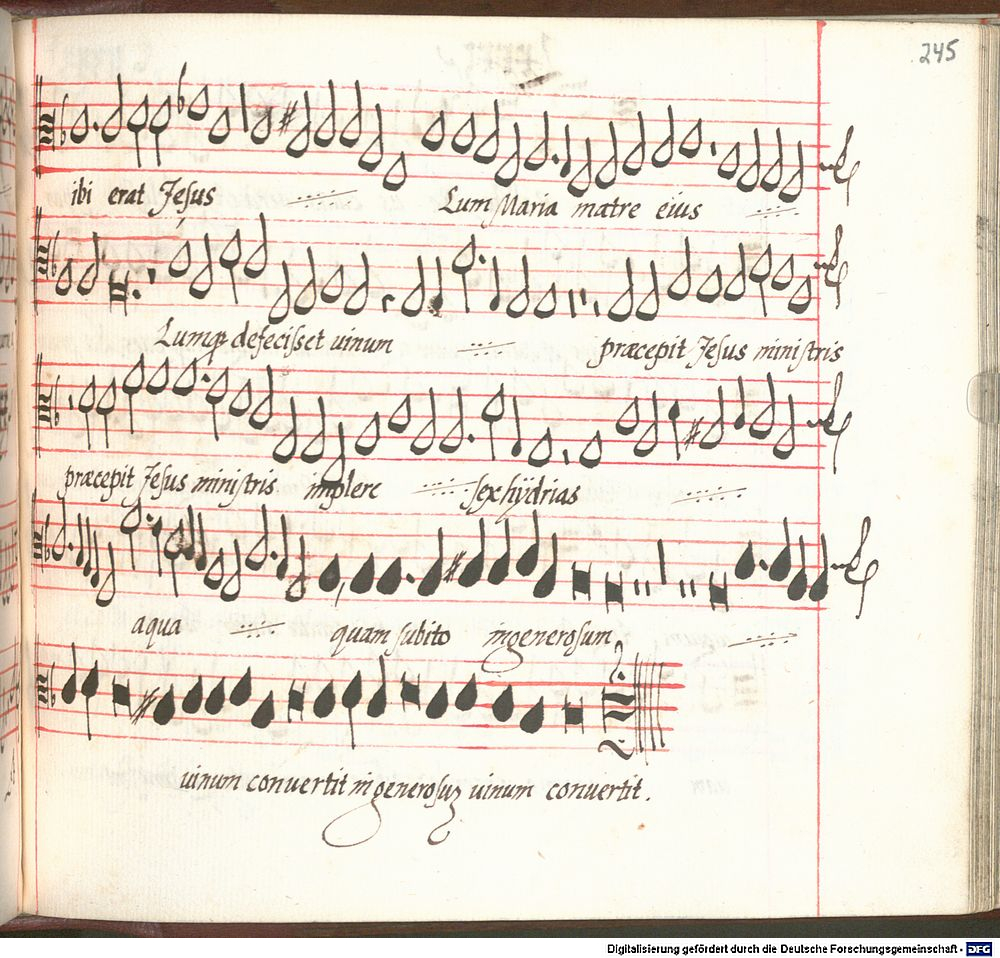 245
ibi erat Jesus Cum Maria matre eius
Cumq defecisset uinum præcepit Jesus ministris
præcepit Jesus ministris implere sex hÿdrias
aqua quam subito in generosum
uinum conuertit in generosuȝ uinum conuertit.
Digitalisierung gefördert durch die Deutsche Forschungsgemeinschaft - DFG